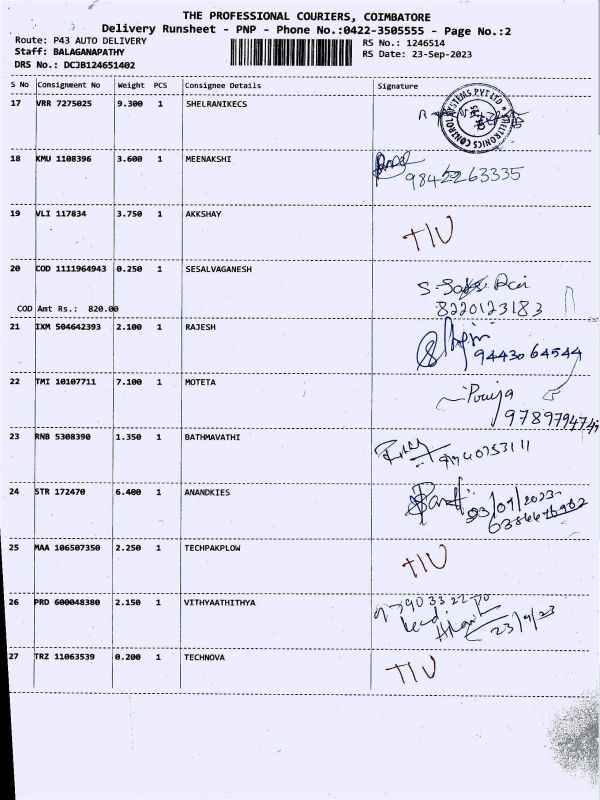 THE PROFESSIONAL COURIERS, COIMBATORE
Delivery Runsheet - PNP - Phone No.:0422-3505555 - Page No.:2
Route: P43 AUTO DELIVERY
RS No.: 1246514
Staff: BALAGANAPATHY
RS Date: 23-Sep-2023
DRS No.: DCJB124651402
S No Consignment No Weight PCS Consignee Details Signature
17 VRR 7275025 9.300 1 SHELRANIKECS
CONTROL SYSTEMS PVT LTD
18 KMU 1108396 3.600 1 MEENAKSHI
9842263335
19 VLI 117834 3.750 1 AKKSHAY
TIU
20 COD 1111964943 0.250 1 SESALVAGANESH
8220123183
COD Amt Rs.: 820.00
21 IXM 504642393 2.100 1 RAJESH
9443064544
22 TMI 10107711 7.100 1 MOTETA
Pouja
23 RNB 5308390 1.350 1 BATHMAVATHI
24 STR 172470 6.400 1 ANANDKIES
23/09/2023
25 MAA 106507350 2.250 1 TECHPAKPLOW
TIU
26 PRD 600048380 2.150 1 VITHYAATHITHYA
23/9/23
27 TRZ 11063539 0.200 1 TECHNOVA
TIU